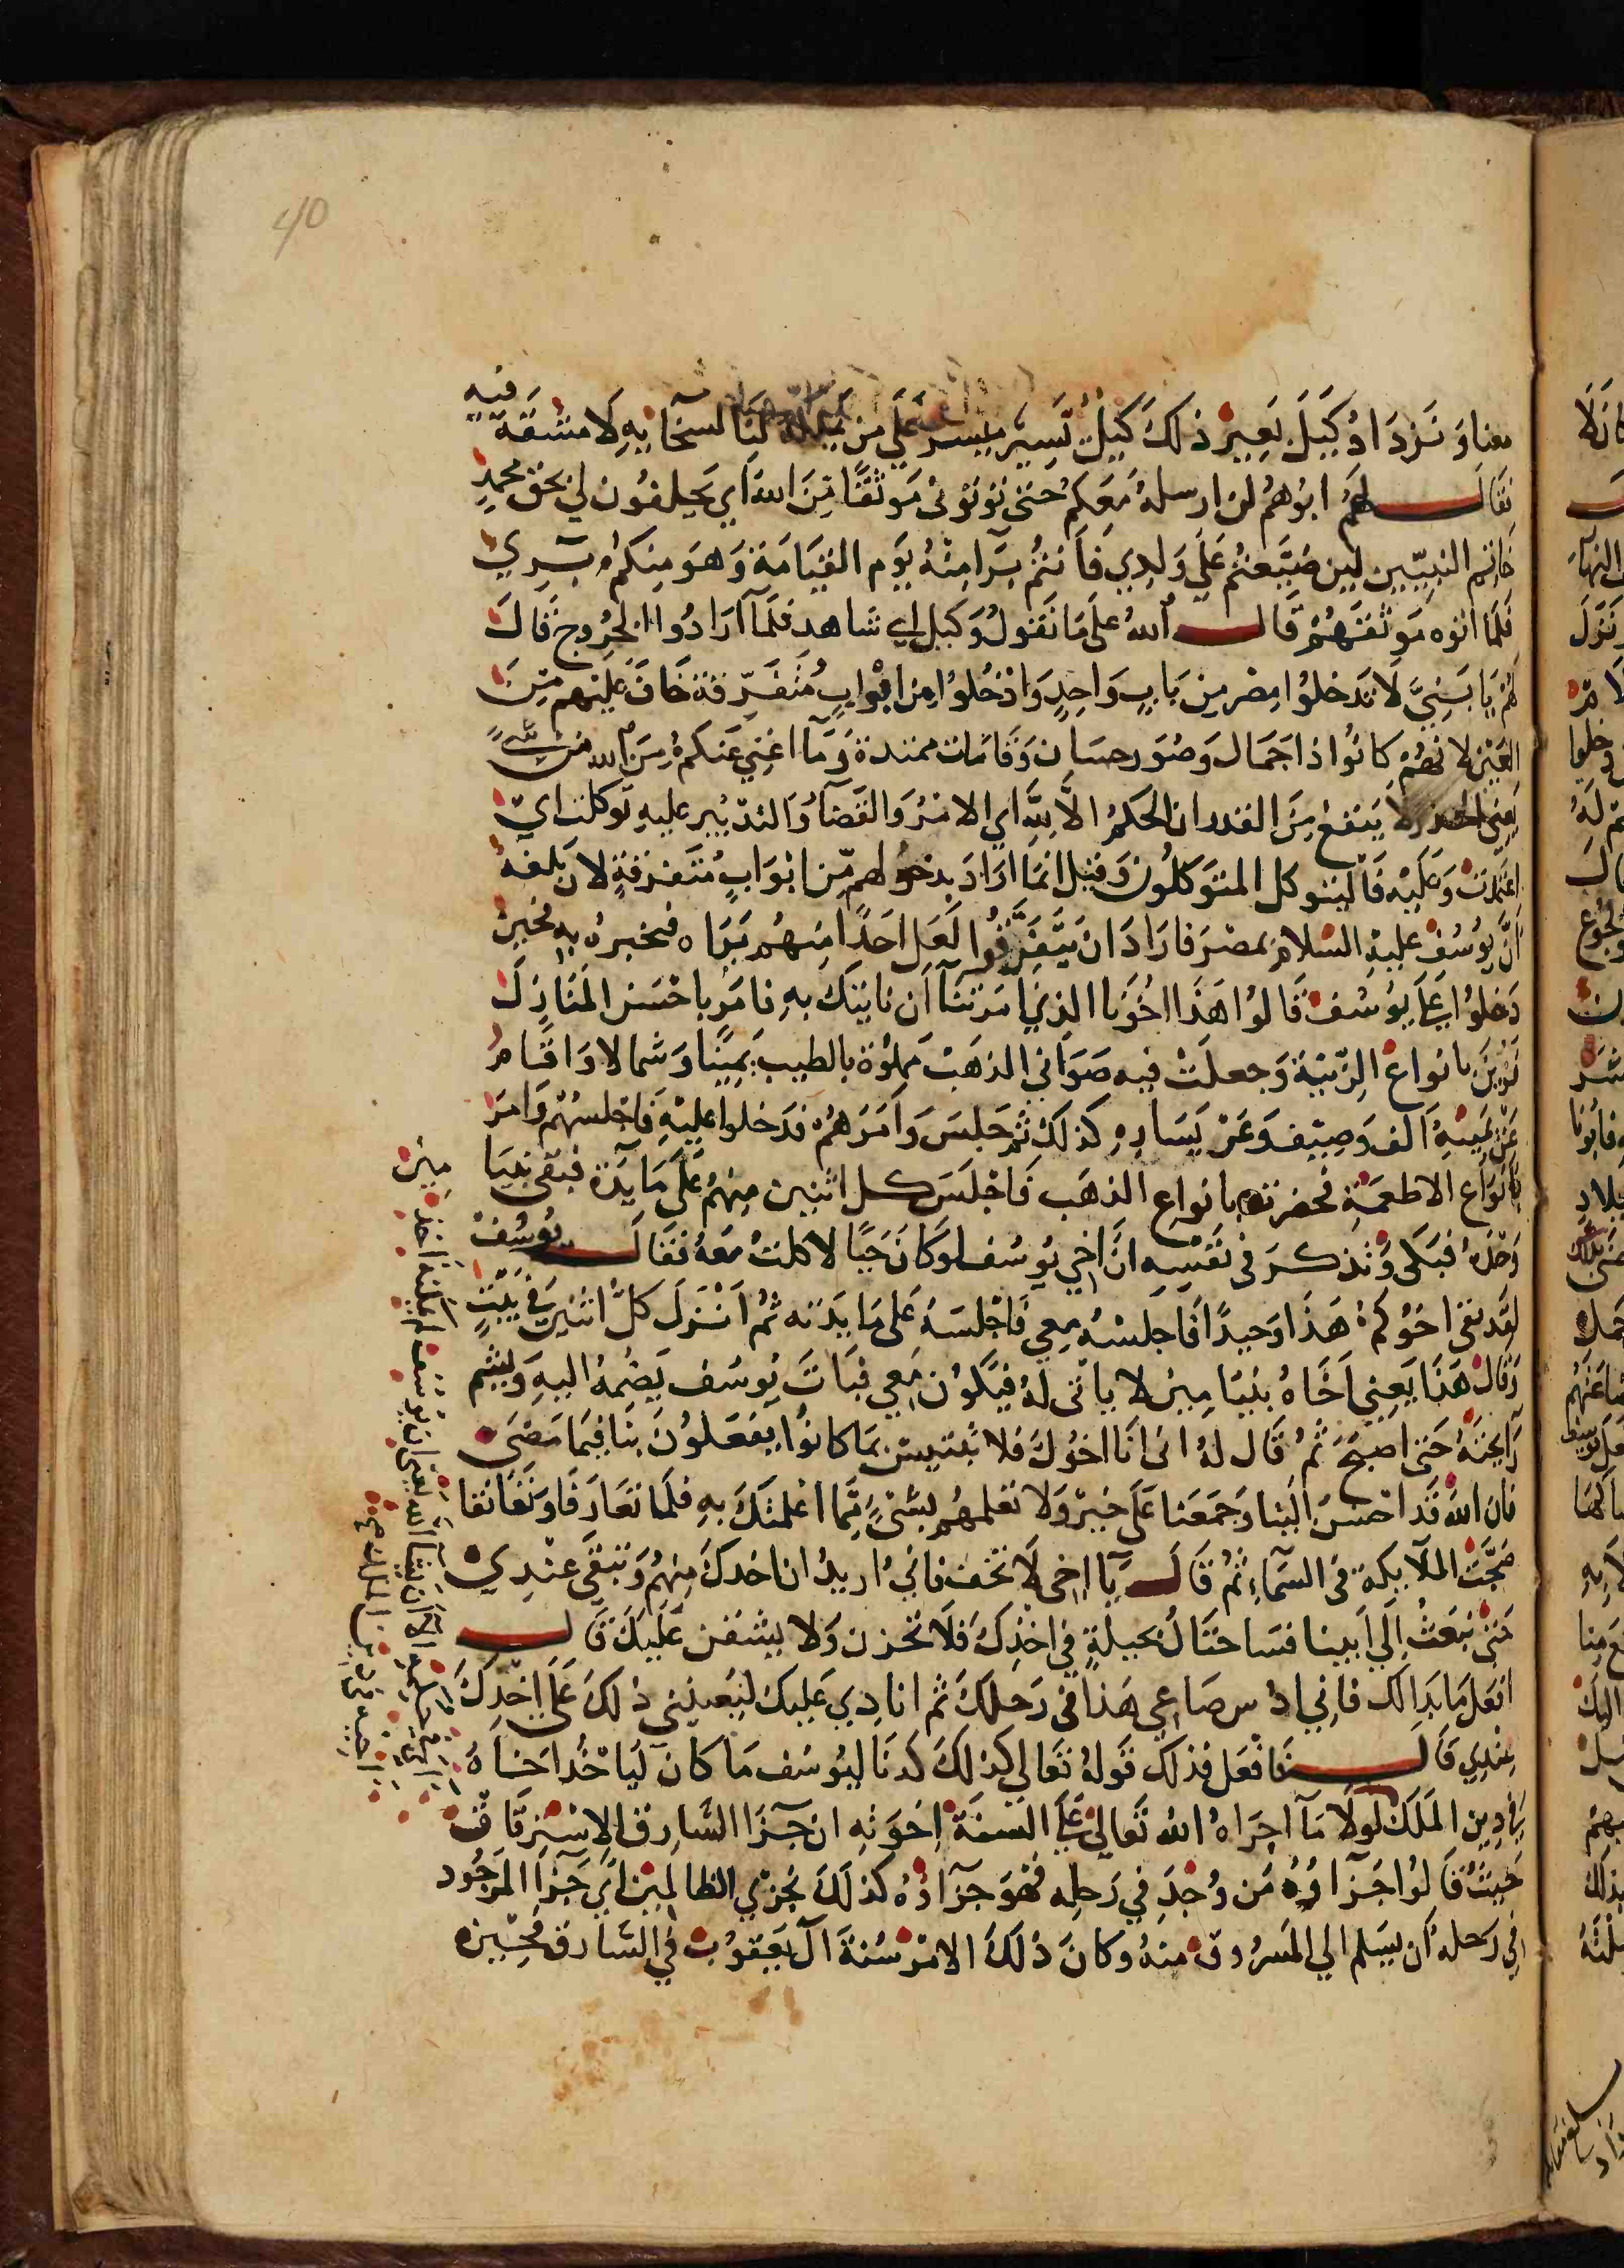 معنا وَنَزدَادُ كَيلَ بَعِيرٍ ذلكَ كَيلٌ يَسِيرٌ ميَسرٌ عَلَي مَن لنَا لسخَايهِ لَا مشقَة فيهِ
فقَالَ لهُم ابُوهُم لن ارسلهُ مَعكم حَتى توتونى مَوثقًا مِّنَ الله اَي يَحلفون لي بحَق محمدٍ
خَاتِم النبيّين لين ضَيَّعتُم عَلَي وَلدِي فَاَنتمُ بَرَا مِنهُ يَوم القيَامَة وَهوَ منكم بَرِي
فَلمَا اتوه مَوثقَهُم قَالَ اللهُ عَلَى مَا نَقولُ وَكيل اي شاهد فلمَّا اَرَادُوا الخرُوج قَالَ
لهُم يَا بَنِيَّ لَا تَدخلوُا مِصر مِن بَابٍ وَاحِدٍ وَادخُلوُا مِن ابوَابٍ مُتَفَرّقة خَافَ عَليهم مِنَ
العَيْن لانهُم كانُوا ذا جَمَال وَصُوَر حِسَان وَقَامَات ممتدة وَمَا اغنِي عَنكم مِنَ الله من شَيْ
يَعنى الحذر لَا يَنفعُ مِنَ القدر ان الحكمُ الَّا لِلَّهِ اي الامرُ وَالقضَا وَالتدبير عليهِ توكلت اي
اعتمَدت وَعَليْه فَاليتوكل المتوَكلُون وَقيل انمَا ارَادَ بدخولهم مِّن ابوَابٍ مُتَفرّقةٍ لانَّ بَلغهُ
اَنَّ يوسُفْ عليهِ السّلام بمصرَ فارَادَ اَن يَتَفرَّقُوا لَعَل احَدًا مِنهُم يَرَاه فيخبرهُ بهِ فحِين
دَخلوُا عَلَي يوُسُف قَالوُا هَذَا اخُونَا الذِي اَمَرتنَا اَن نَاتيَكَ بهِ فامَر باحْسَن المنَازل
تزينَ بانوَاع الزّينَة وَجعلتْ فيه صَوَانى الذهَبْ مَملُوة بالطيب يَمينًا وَشمالا وَاقَامُ
عَنْ يَمِينهِ اَلف وَصِيف وَعَنْ يَسَارِه كَذلكَ ثم جَلسَ وَاَمَرَهمُ فدَخلوا عليْهِ فَاجلسهُم وَامَرَ
بَانوَاع الاطعمَة فحضرته بانواع الذهَب فَاجلَس كل اثنين مِنهُم عَلَى مَايدَة فبقى بنيَا
مين
وَحْدَهُ فبَكى وَتَذكرَ في نَفسِه انَّ اخِي يُوسُف لوَ كانَ حَيًا لاكلتُ مَعهُ فقَالَ يُوسُف
لقد بقى اخُوكم هَذَا وَحيدًا فَاجلسهُ معي فَاجلسَهُ عَلى مَايدَته ثم اَنزَلَ كلَّ اثنين في بَيْتٍ
وَقَال هَذَا يَعنِي اَخَاهُ بنيَا مِين لا ياتى لهُ فيَكون مَعِي فبَاتَ يُوسُف يَضُمهُ اليهِ وَيشم
رَايحتَهُ حَتى اصبحَ ثم قَال لهُ انى انَا اخُوكَ فلا تَبتيس بمَا كانوُا يفعَلوُنَ بنَا فيمَا مَضَى
فان اللهَ قَد احسَنَ الَينا وَجمَعَنا عَلَي خيْر وَلا تعلمهُم بشَىْ مِّمَّا اعلمتكَ بهِ فلمَا تعَارَفَا وَتَعَانقا
ضجَّتِ الملَايكة فى السمَاء ثم قَالَ يَا اخى لَا تَخف فاني اريدُ ان اخذكَ منهُم وَتَبقَى عنْدِي
مَتى نَبعثُ اِلَي اَبينا فسَاحتَالُ بحيلةٍ في اخذِكَ فلَا تحزن وَلا يشقن عَلَيكَ قَالَ
افعَل مَا بَدَالك فانِي ادُس صَاعِي هَذَا فى رَحلكَ ثم انَادِي عَليكَ ليُعينني ذلكَ عَلَى اخذِكَ
عِندِي قَالَ فَافعَل فذلك قَولهُ تعَالي كذلكَ كدنَا ليُوسُف مَا كانَ ليَاخُذ اخَاهُ
في دِين المَلَك لَولَا مَا اجرَاهُ الله تَعَالىُ عَلَي السنة اخوَتهِ ان جزَا السَّارِق الاِسْترقَاق
حَيثُ قَالوُا جَزآوُهُ مَن وُجدَ في رَحلِه فهوَ جزَاوهُ كذلكَ نجزي الظالمينَ اي جزَا الموجُود
في رَحله اَن يسَلم الي المَسرُوق منهُ وكانَ ذلكَ الامر سُنةَ آل يَعقوُبْ في السَّارق فحينئذ